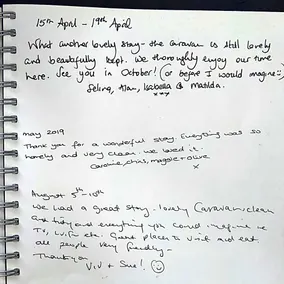 15th April - 19th April
What another lovely stay - the caravan is still lovely
and beautifully kept. We thoroughly enjoy our time
here. See you in October! (or before I would imagine :)
Selina, Alan, Isabella & Matilda.
xxx
may 2019
Thank you for a wonderful stay. Everything was so
homely and very clean. we loved it.
Caroline, chris, maggie + olive
x
August 5th - 10th
We had a great stay. lovely Caravan, clean
and tidy and everything you could imagine ie
TV, wifi etc. Great places to visit and eat
all people very friendly -
Thankyou
Viv + Sue!